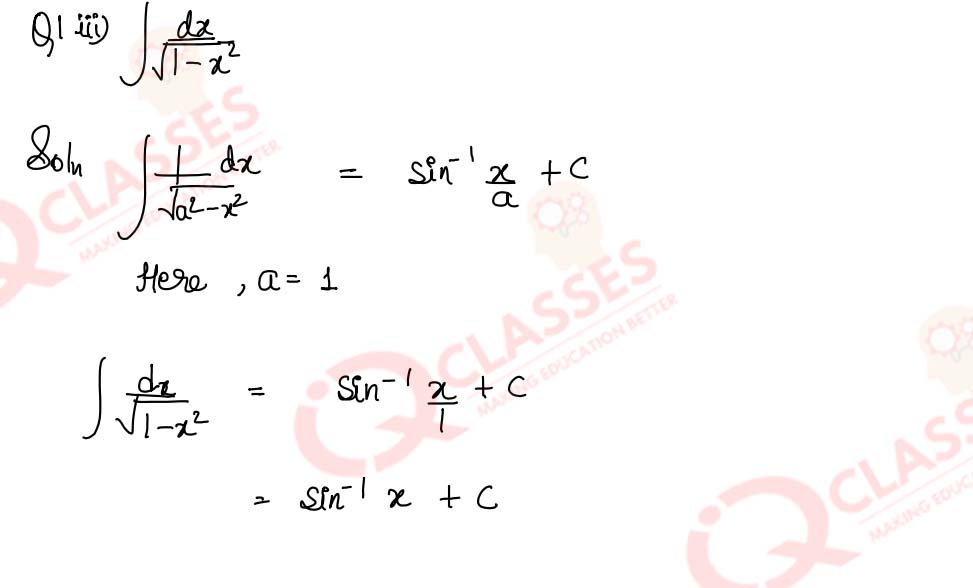 Q1 iii) ∫ dx/√(1-x²)
Soln ∫ 1/√(a²-x²) dx = sin⁻¹ x/a + C
Here , a = 1
∫ dx/√(1-x²) = sin⁻¹ x/1 + C
= sin⁻¹ x + C
IQ CLASSES
MAKING EDUCATION BETTER
IQ CLASSES
MAKING EDUCATION BETTER
IQ CLASSES
MAKING EDUCA